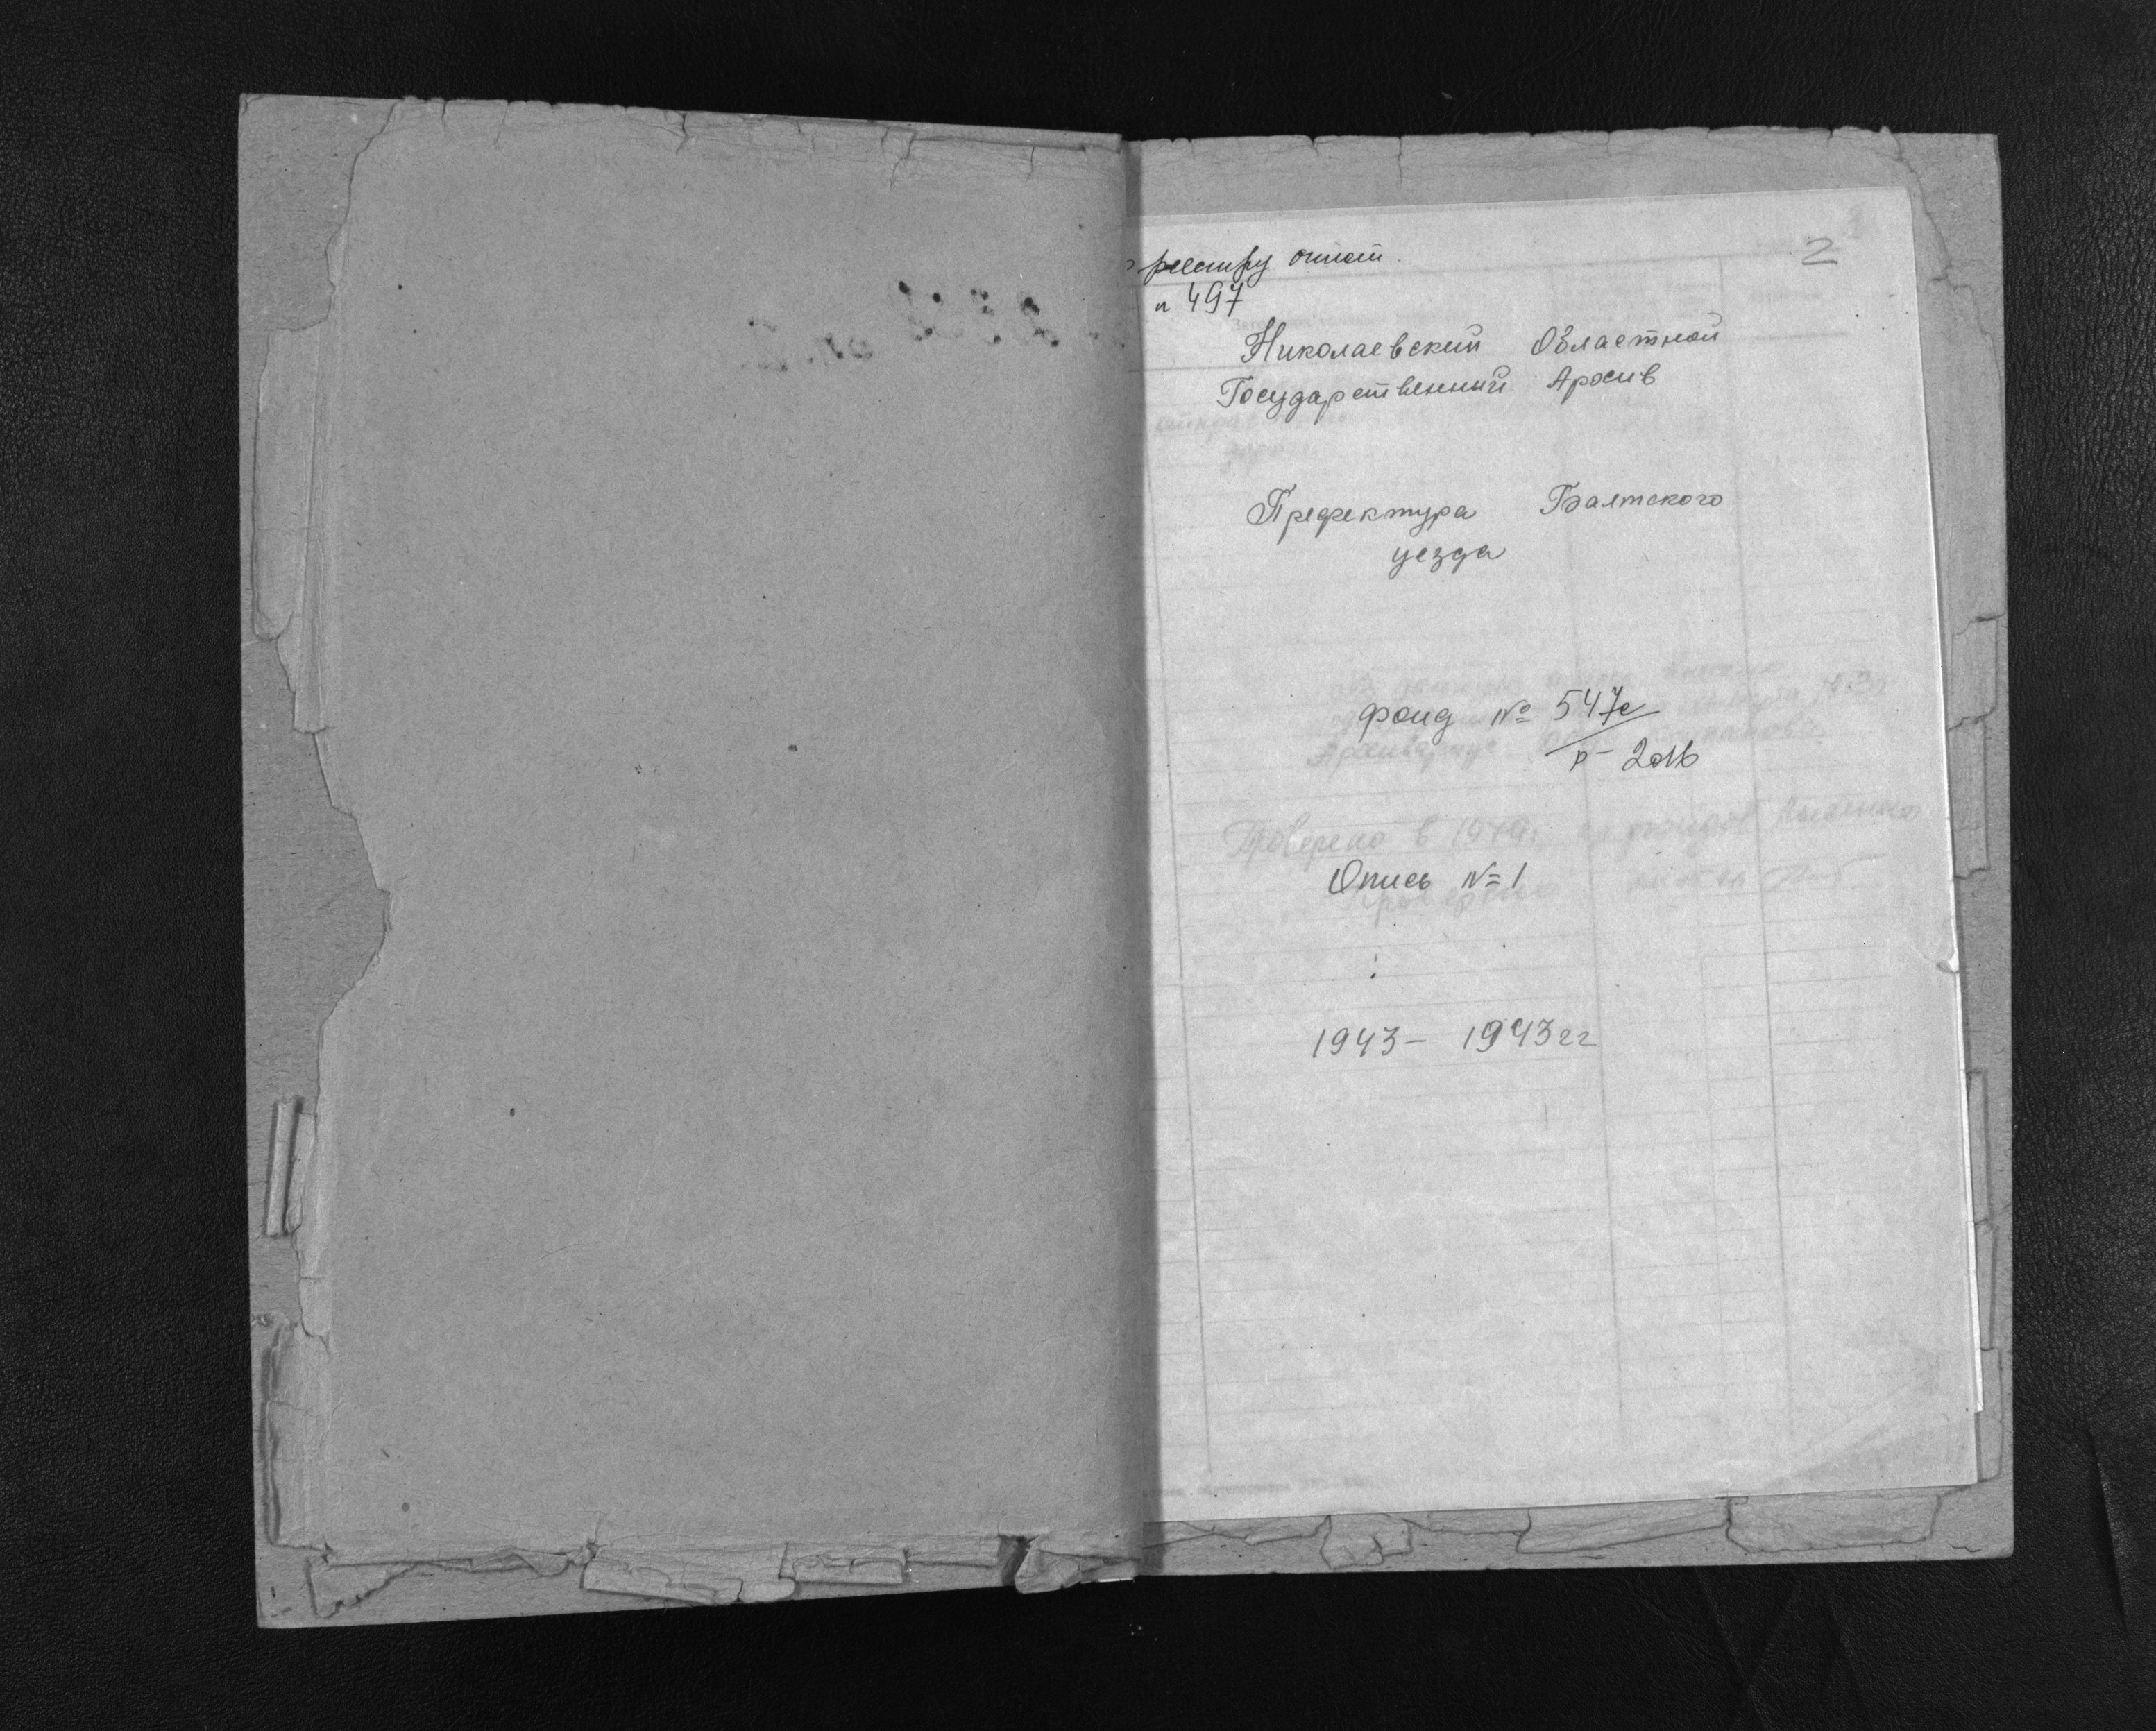 реестру описи
2
497
Николаевский Областной
Государственный Архив
Префектура Балтского
уезда
Фонд № 547с
р-2016
Опись № 1
1943 – 1943 гг